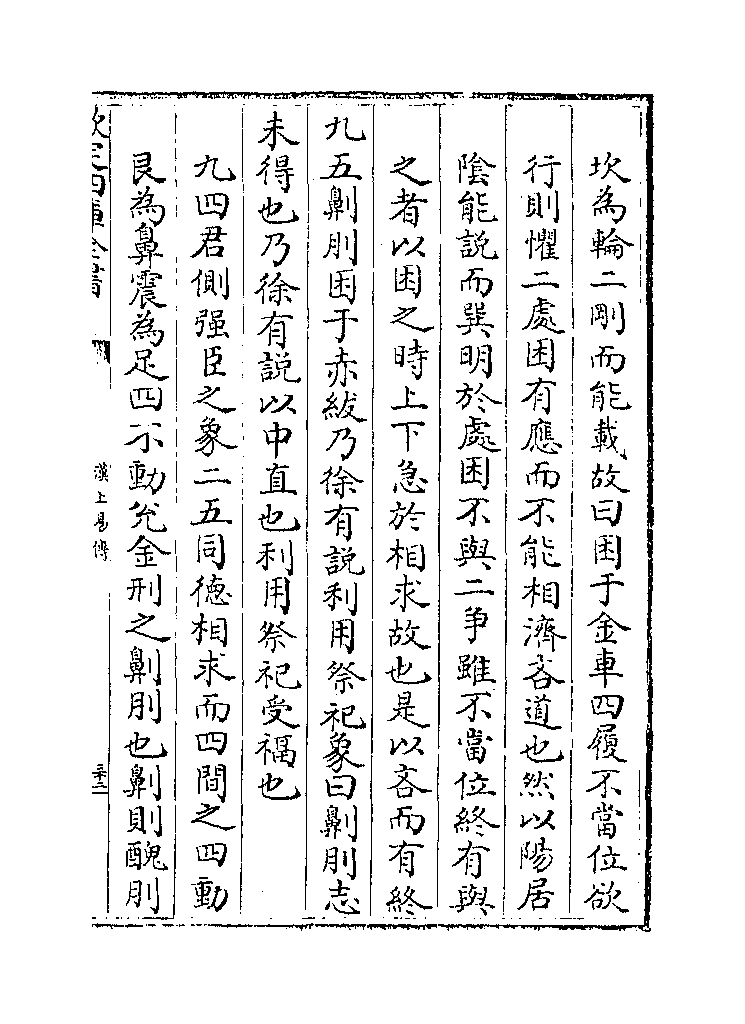 坎為輪二剛而能載故曰困于金車四履不當位欲
行則懼二處困有應而不能相濟吝道也然以陽居
陰能説而巽明於處困不與二争雖不當位終有與
之者以困之時上下急於相求故也是以吝而有終
九五劓刖困于赤紱乃徐有説利用祭祀象曰劓刖志
未得也乃徐有説以中直也利用祭祀受福也
九四君側强臣之象二五同德相求而四間之四動
艮為鼻震為足四不動兊金刑之劓刖也劓則醜刖
欽定四庫全書
漢上易傳